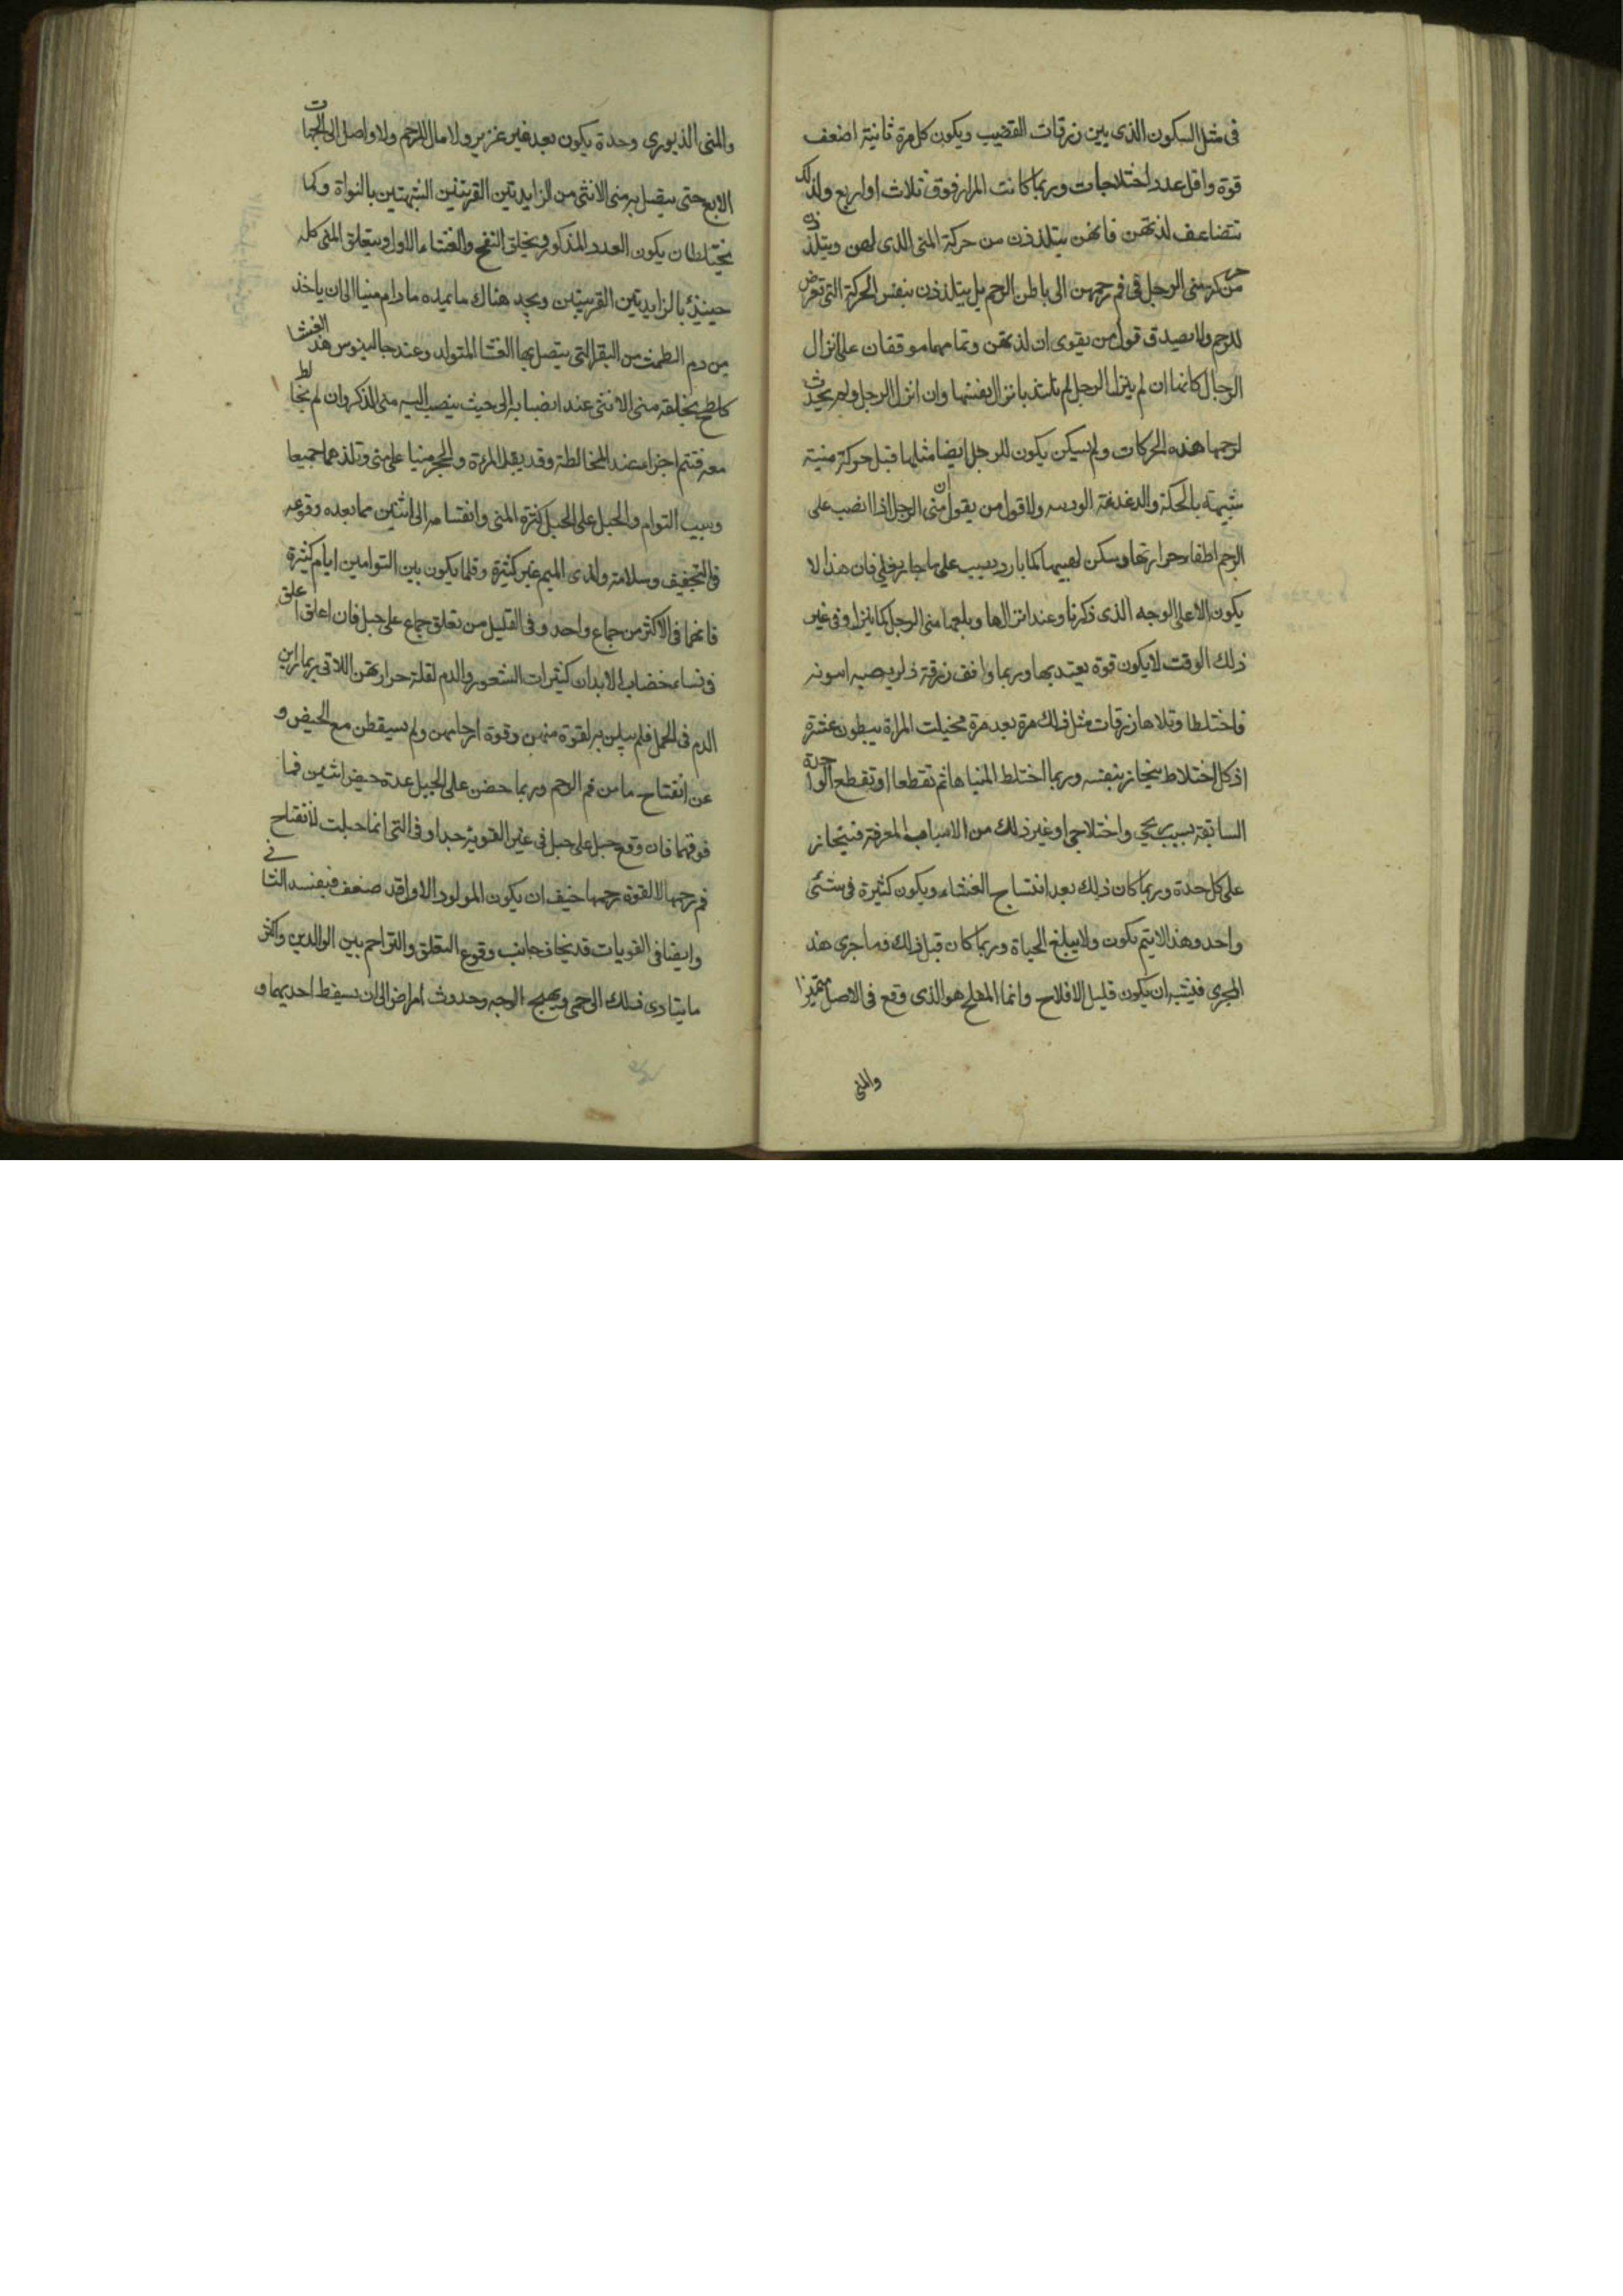 فى مثل السكون الذى بين زرقات القضيب ويكون كل مرة ثانية اضعف
قوة واقل عدد اختلاجات وربما كانت المرار فوق ثلاث او اربع ولذلك
تتضاعف لذتهن فانهن يتلذذن من حركة المنى الذى لهن ويتلذذن
من حركة منى الرجل فى فم رحمهن الى باطن الرحم بل يتلذذن بنفس الحركة التى تعرض
للرحم ولا يصدق قول من يقوى ان لذتهن وتمامهما موقفان على انزال
الرجال كانها ان لم ينزل الرجل لم تلتذ بانزال نفسها وان انزل الرجل ولم يحدث
لرحمها هذه الحركات ولم يسكن يكون للرجل ايضا مثلها قبل حركة منية
شبيهة بالحكة والدغدغة الودية ولا قول من يقول ان منى الرجل اذا انصب على
الرحم اطفا حرارتها وسكن لهيبها كما بارد يسب على ما حار يغلى فان هذا لا
يكون الا على الوجه الذى ذكرنا وعند انزالها وبلعها منى الرجل كما ينزل وفى غير
ذلك الوقت لا يكون قوة يعتد بها وربما وافق زرقة
فاختلطا وتلاها زرقات مثل ذلك مرة بعد مرة فحبلت المراة ببطون عشرة
اذ كل اختلاط ينحاز بنفسه وربما اختلط المنياها ثم تقطعا او تقطع الواحدة
السابقة بسبب ريحى واختلاجى او غير ذلك من الاسباب المفرقة فينحاز
على كل حدة وربما كان ذلك بعد انتساج الغشاء ويكون كثيرة فى شئى
واحد وهذا لا يتم تكون ولا يبلغ الحياة وربما كان قبل ذلك فما جرى هذ
المجرى فيشبه ان يكون قليل الافلاح وانما المفلح هو الذى وقع فى الاصل متميزا
والمنى
والمنى الذيورى وحدة يكون بعد غير غزير ولا مال للرحم ولا واصل الى الجهات
الاربع حتى يتصل به منى الانثى من الزايدتين القرنيتين الشبيهتين بالنواة وكما
يختلطان يكون العدد المذكور ويخلق النفخ والغشاء الاول ويتعلق المنى كله
حينئذ بالزايدتين القرنيتين ويجد هناك ما يمده ما دام منيا الى ان ياخذ
من دم الطمث من النقر التى يتصل بها الغشا المتولد وعند جالينوس هذ الغشا
كلطخ يخلقه منى الانثى عند انصبابه الى حيث ينصب اليه منى الذكر وان لم يخالط
معه فتتم اجزاه عند المخالطة وقد يقبل المرءة والحجر منيا على منى وتلدهما جميعا
وسبب التوام والحبل على الحبل كثرة المنى وانقسامه الى اثنين مما بعده ووقوعه
فى التجفيف وسلامة ولذى الميم غير كثيرة وقلما يكون بين التوامين ايام كثيرة
فانهما فى الاكثر من جماع واحد وفى القليل من تعلق جماع على حبل فان اعلق اعلق
فى نساء خضاب الابدان كثيرات الشعور والدم لقلة حرارتهن اللاتى ربما راين
الدم فى الحمل فلم يبلن به لقوة منهن وقوة ارحامهن ولم يسقطن مع الحيض و
عن انفتاح ما من فم الرحم وربما حضن على الحبل عدة حيض اثنين فما
فوقهما فان وقع حبل على حبل فى غير القوية جدا وفى التى انما حبلت لانفتاح
فم رحمها لا لقوة رحمها خيف ان يكون المولود الاول قد ضعف فيفسد الثانى
وايضا فى القويات قد يخاف جانب وقوع التعلق والتزاحم بين الوالدين واكثر
ما يتادى ذلك الى حمى وتهيج الوجه وحدوث امراض الى ان يسقط احديهما و